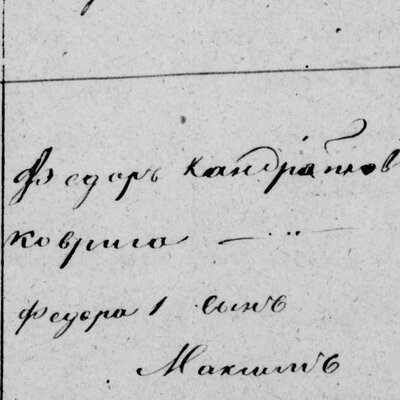 Ѳедоръ Кандратьев
Коврига — „ —
Федора 1 сынъ
Максимъ